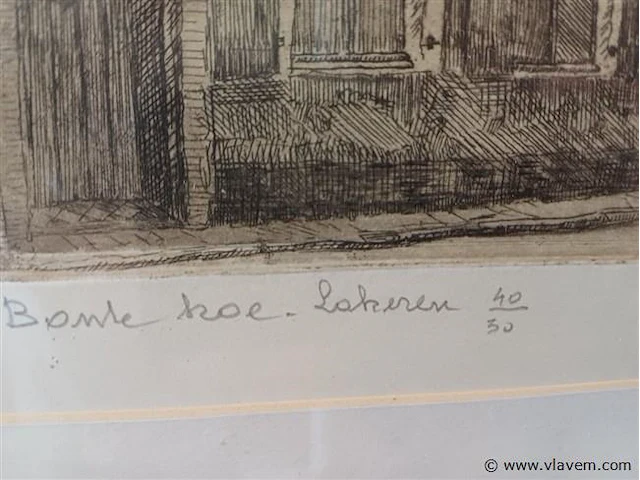 Bonte koe. Lokeren 40/50
© www.vlavem.com